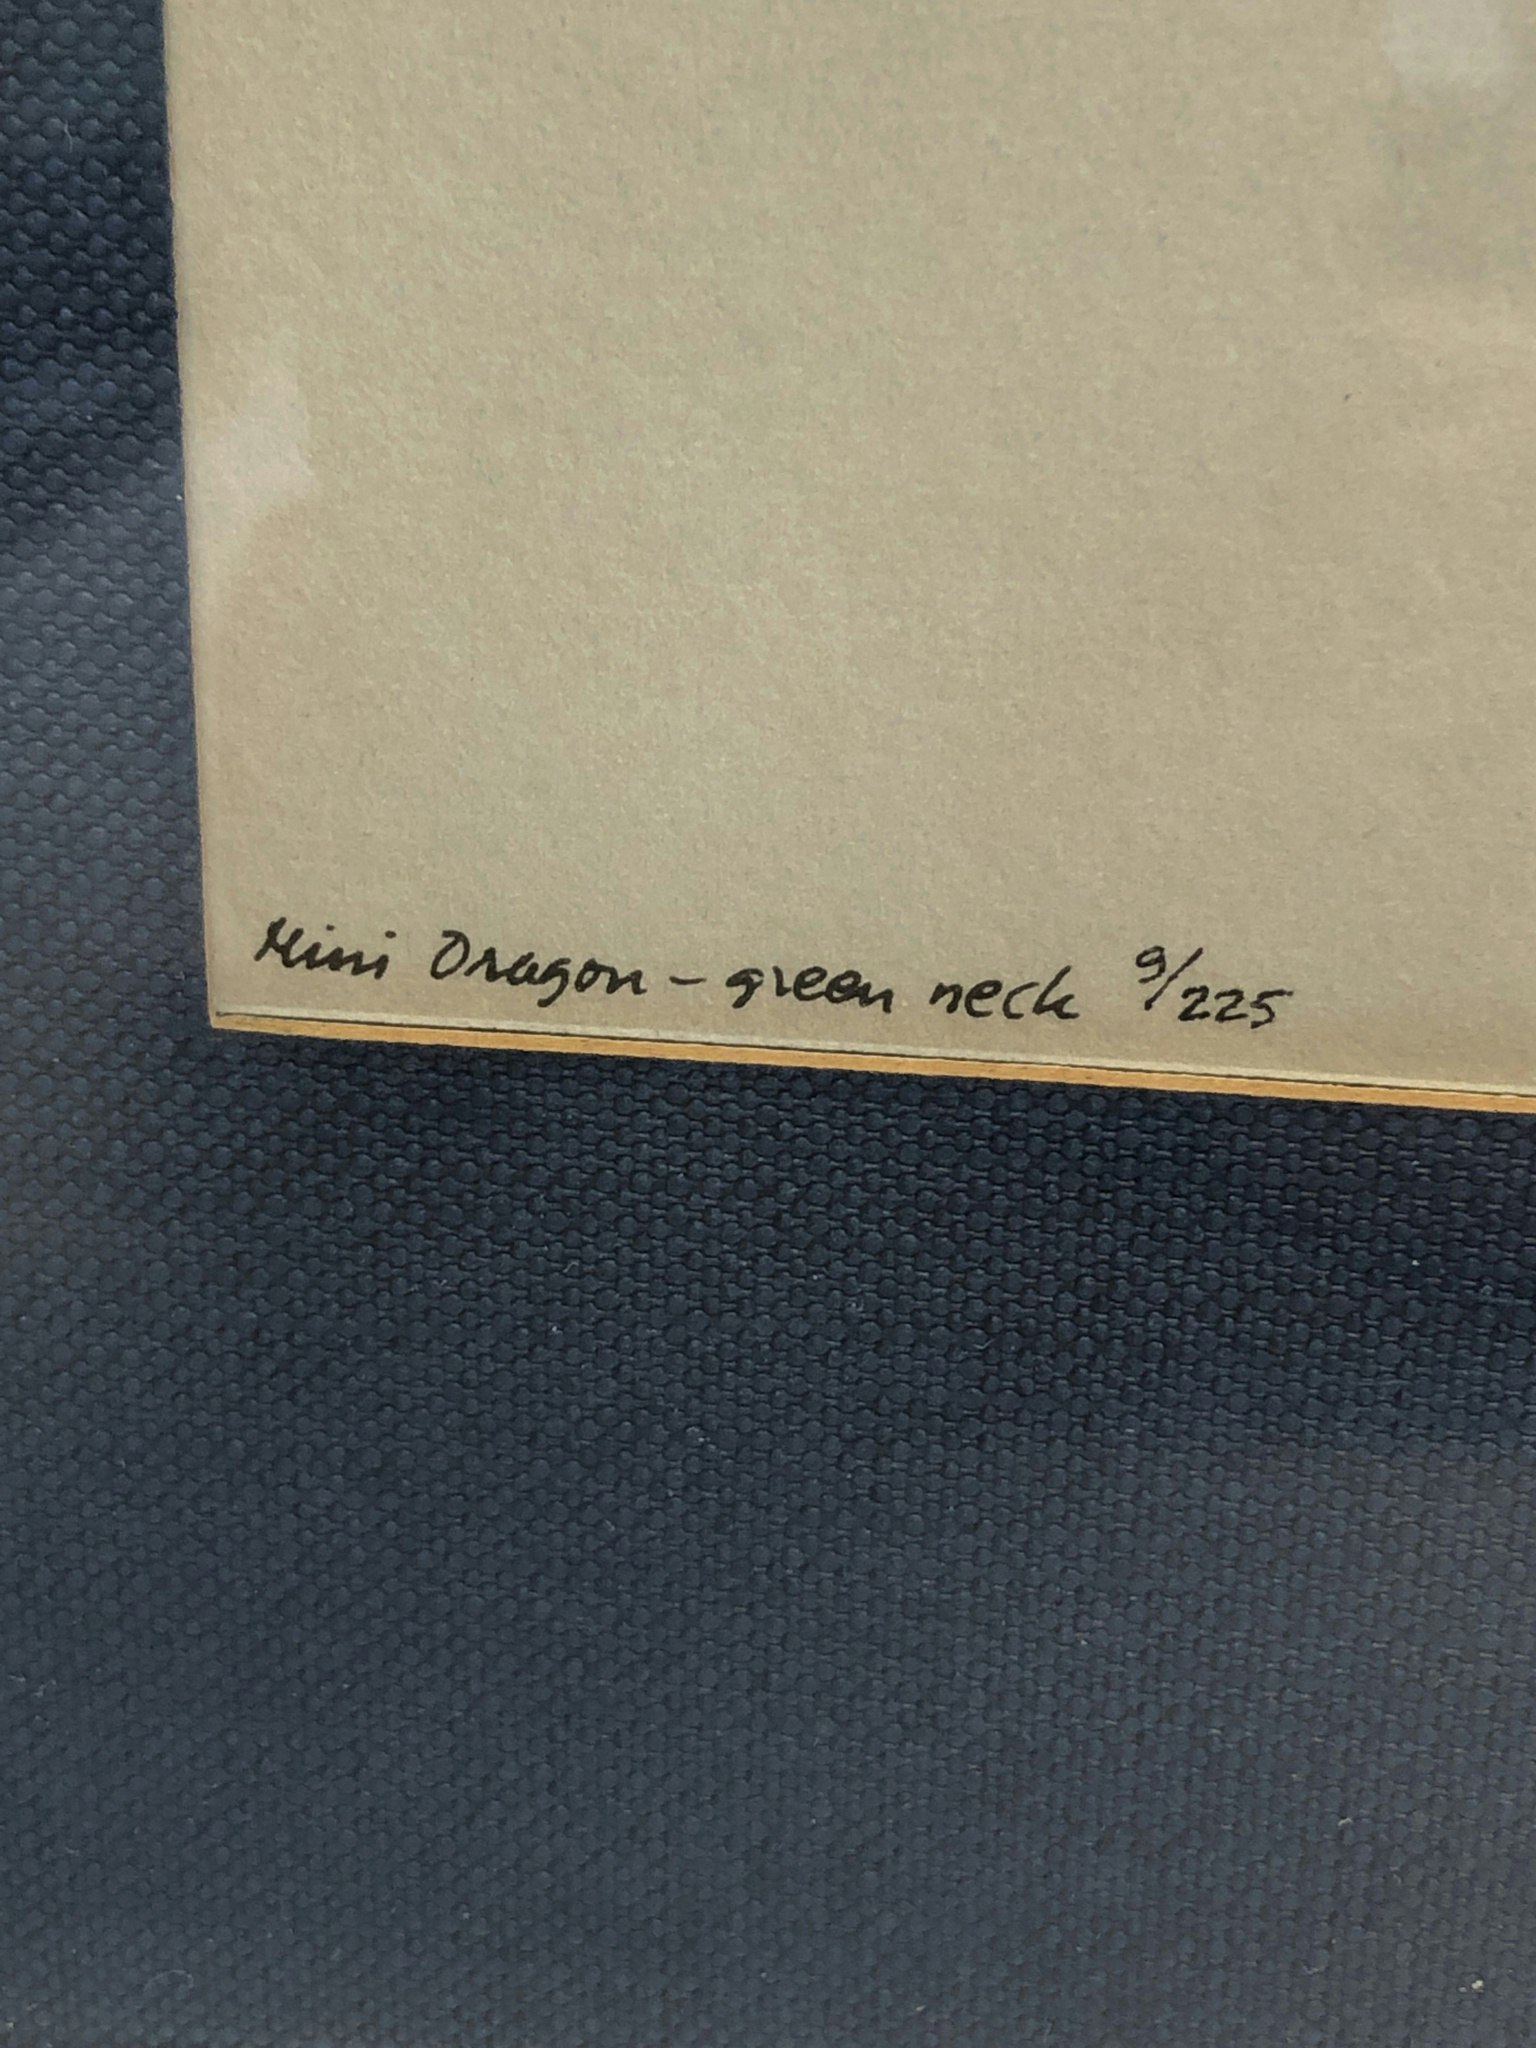 Mini Dragon – green neck 9/225